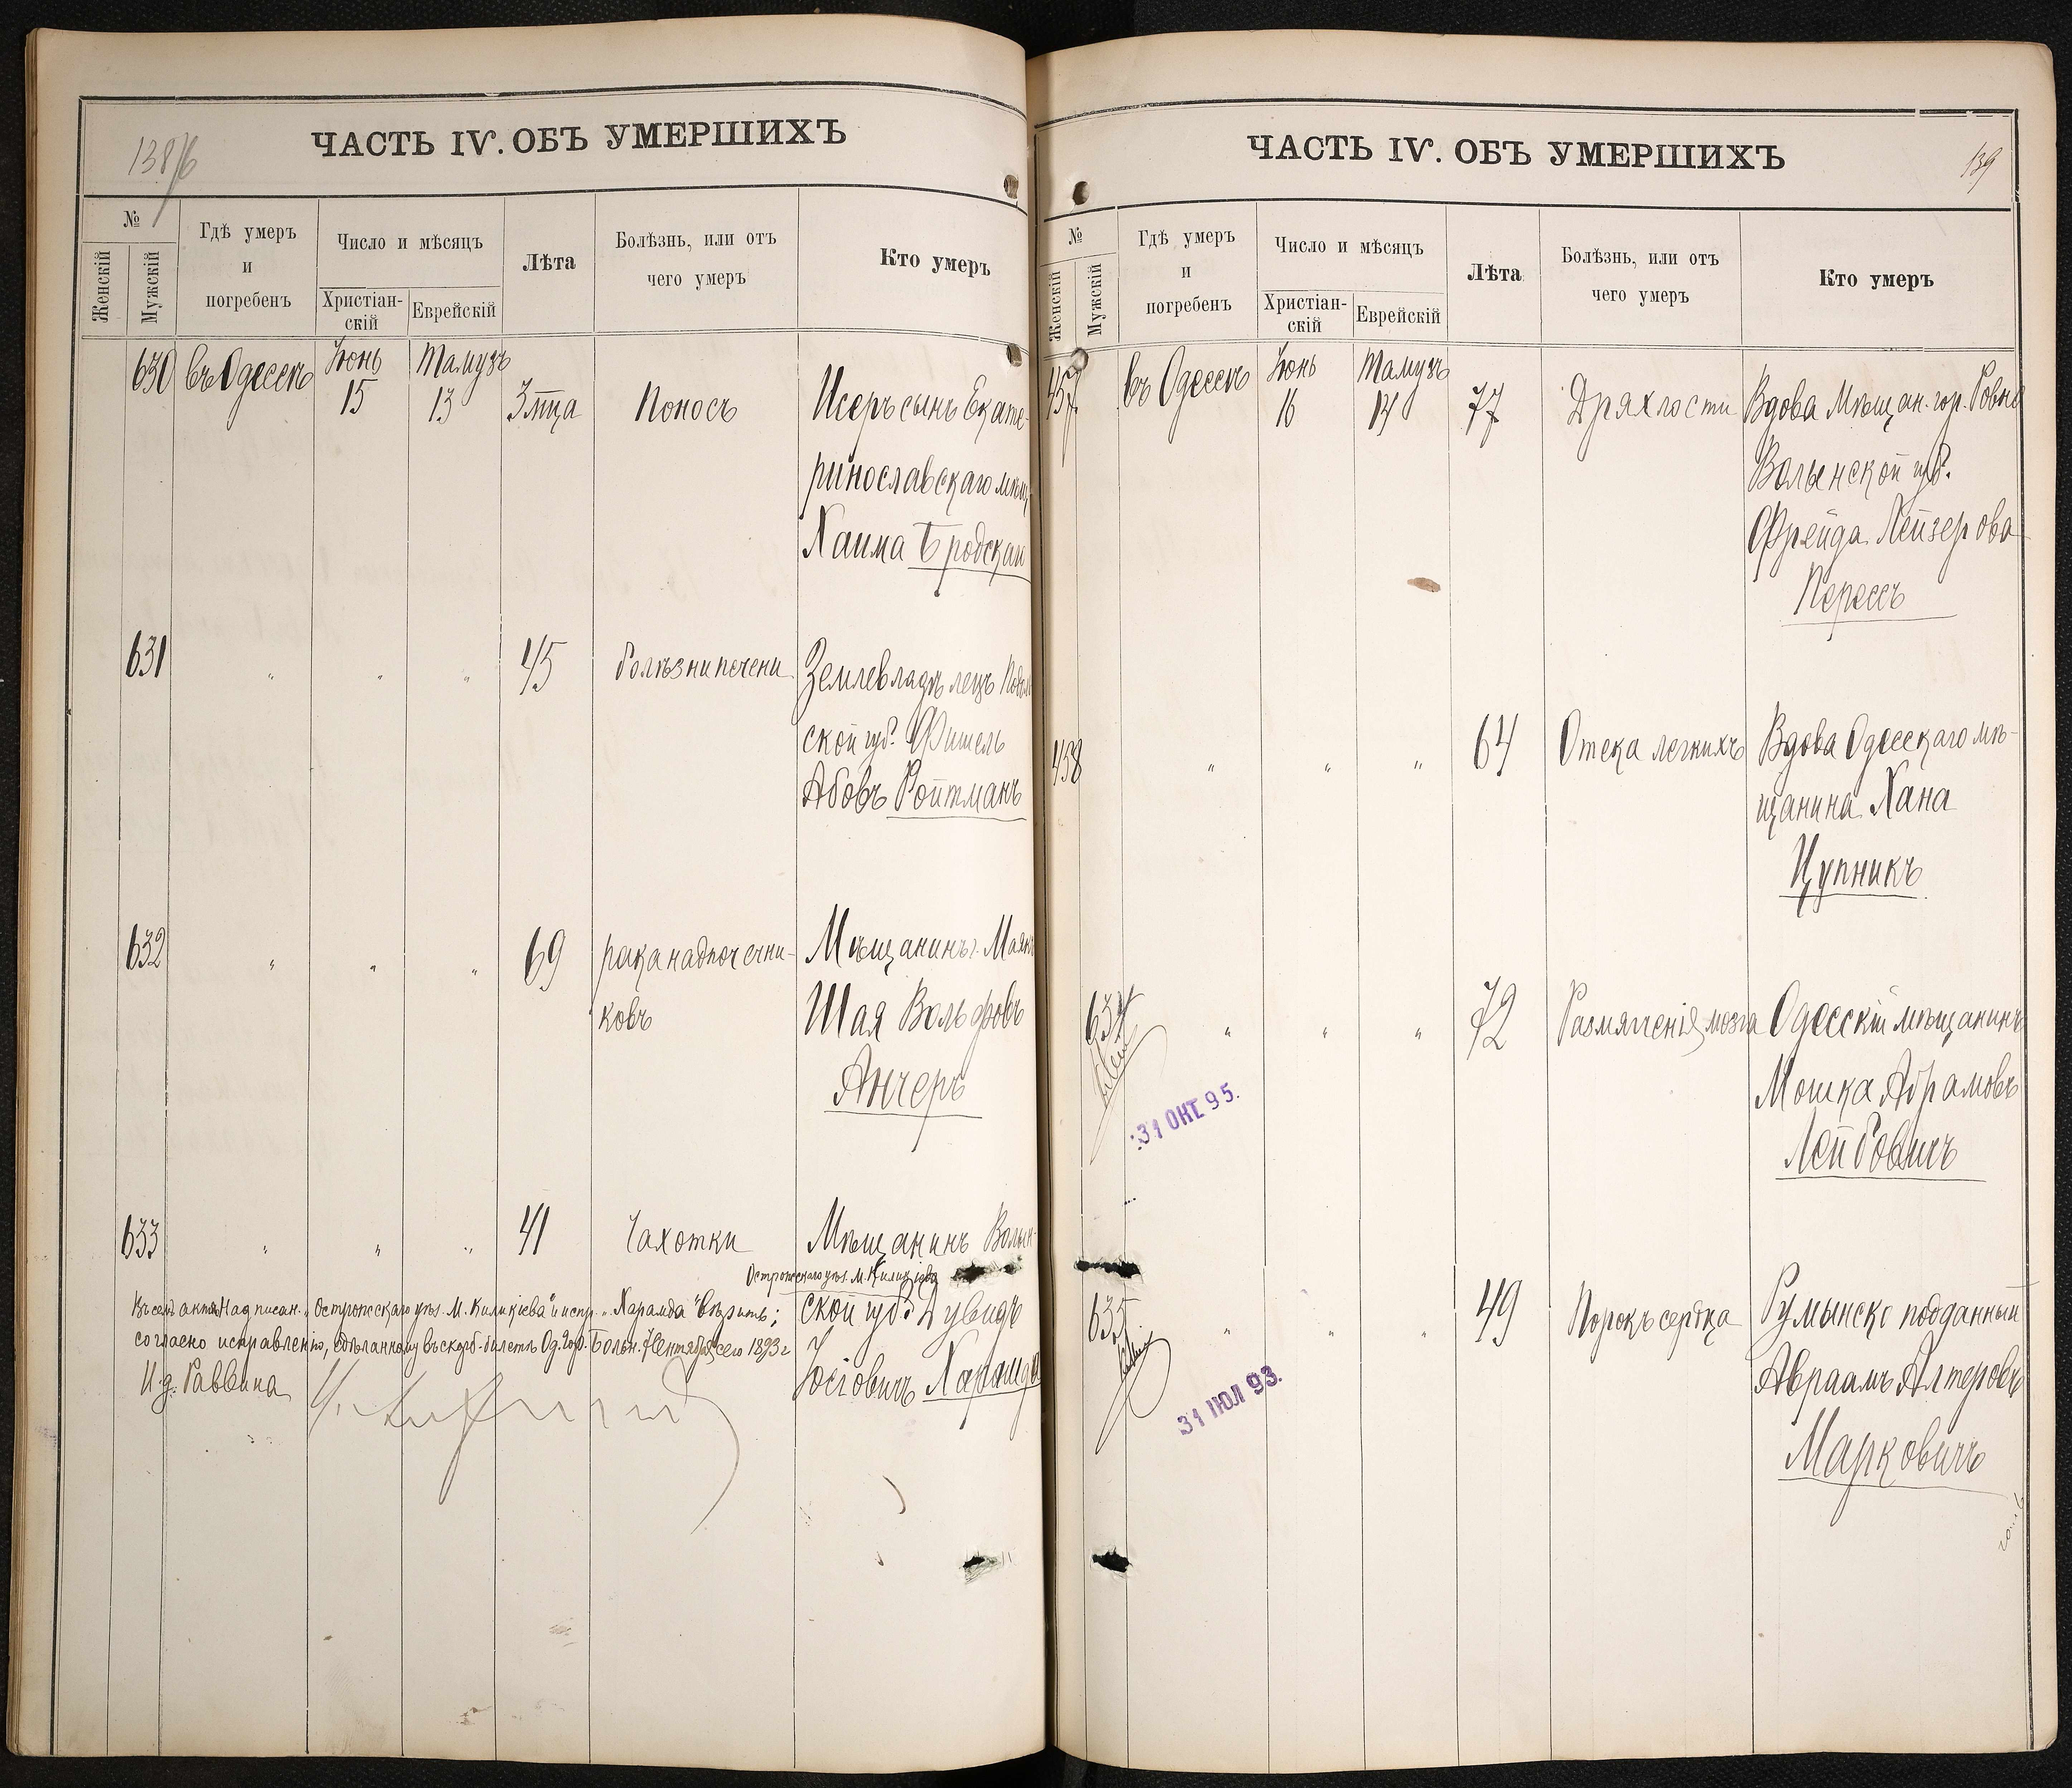 138/6
ЧАСТЬ IV. ОБЪ УМЕРШИХЪ
№
Женскій
Мужскій
Гдѣ умеръ
и
погребенъ
Число и мѣсяцъ
Христіан-
скій
Еврейскій
Лѣта
Болѣзнь, или отъ
чего умеръ
Кто умеръ
630 въ Одессѣ Іюнь Тамузъ
15 13 3 мца Поносъ Исеръ сынъ Екате-
ринославскаго мѣщ
Хаима Бродскаго
631 " " " 45 болѣзни печени Землевладѣлецъ Подол
ской губ. Фишель
Абовъ Ройтманъ
632 " " " 69 рака надпочечни- Мѣщанинъ г. Маякъ
ковъ Шая Вольфовъ
Анчеръ
633 " " " 41 Чахотки Мѣщанинъ Волын-
Острожскаго уѣз. М. Киликіева
ской губ. Дувидъ
Юсіовичъ Харамда
Въ семъ актѣ надписан. "Острожскаго уѣз. М. Киликіева" и испр. "Харамда" вѣрить;
согласно исправленію, сдѣланному въ скорб. билетѣ Од. Гор. Больн. 7 Сентября сего 1893 г
И. д. Раввина
ЧАСТЬ IV. ОБЪ УМЕРШИХЪ
139
№
Женскій
Мужскій
Гдѣ умеръ
и
погребенъ
Число и мѣсяцъ
Христіан-
скій
Еврейскій
Лѣта
Болѣзнь, или отъ
чего умеръ
Кто умеръ
457 въ Одессѣ Іюнь Тамузъ
16 14 77 Дряхлости Вдова Мѣщан. гор. Ровно
Волынской губ.
Фрейда Лейзерова
Пересъ
458 " " " 64 Отека легкихъ Вдова Одесскаго мѣ-
щанина Хана
Цупникъ
634 " " " 72 Размягченія мозга Одесскій мѣщанинъ
Мошка Абрамовъ
Лейбовичъ
31 ОКТ. 95.
635 " " " 49 Порокъ сердца Румынско подданный
Авраамъ Алтеровъ
Марковичъ
31 ІЮЛ 93.